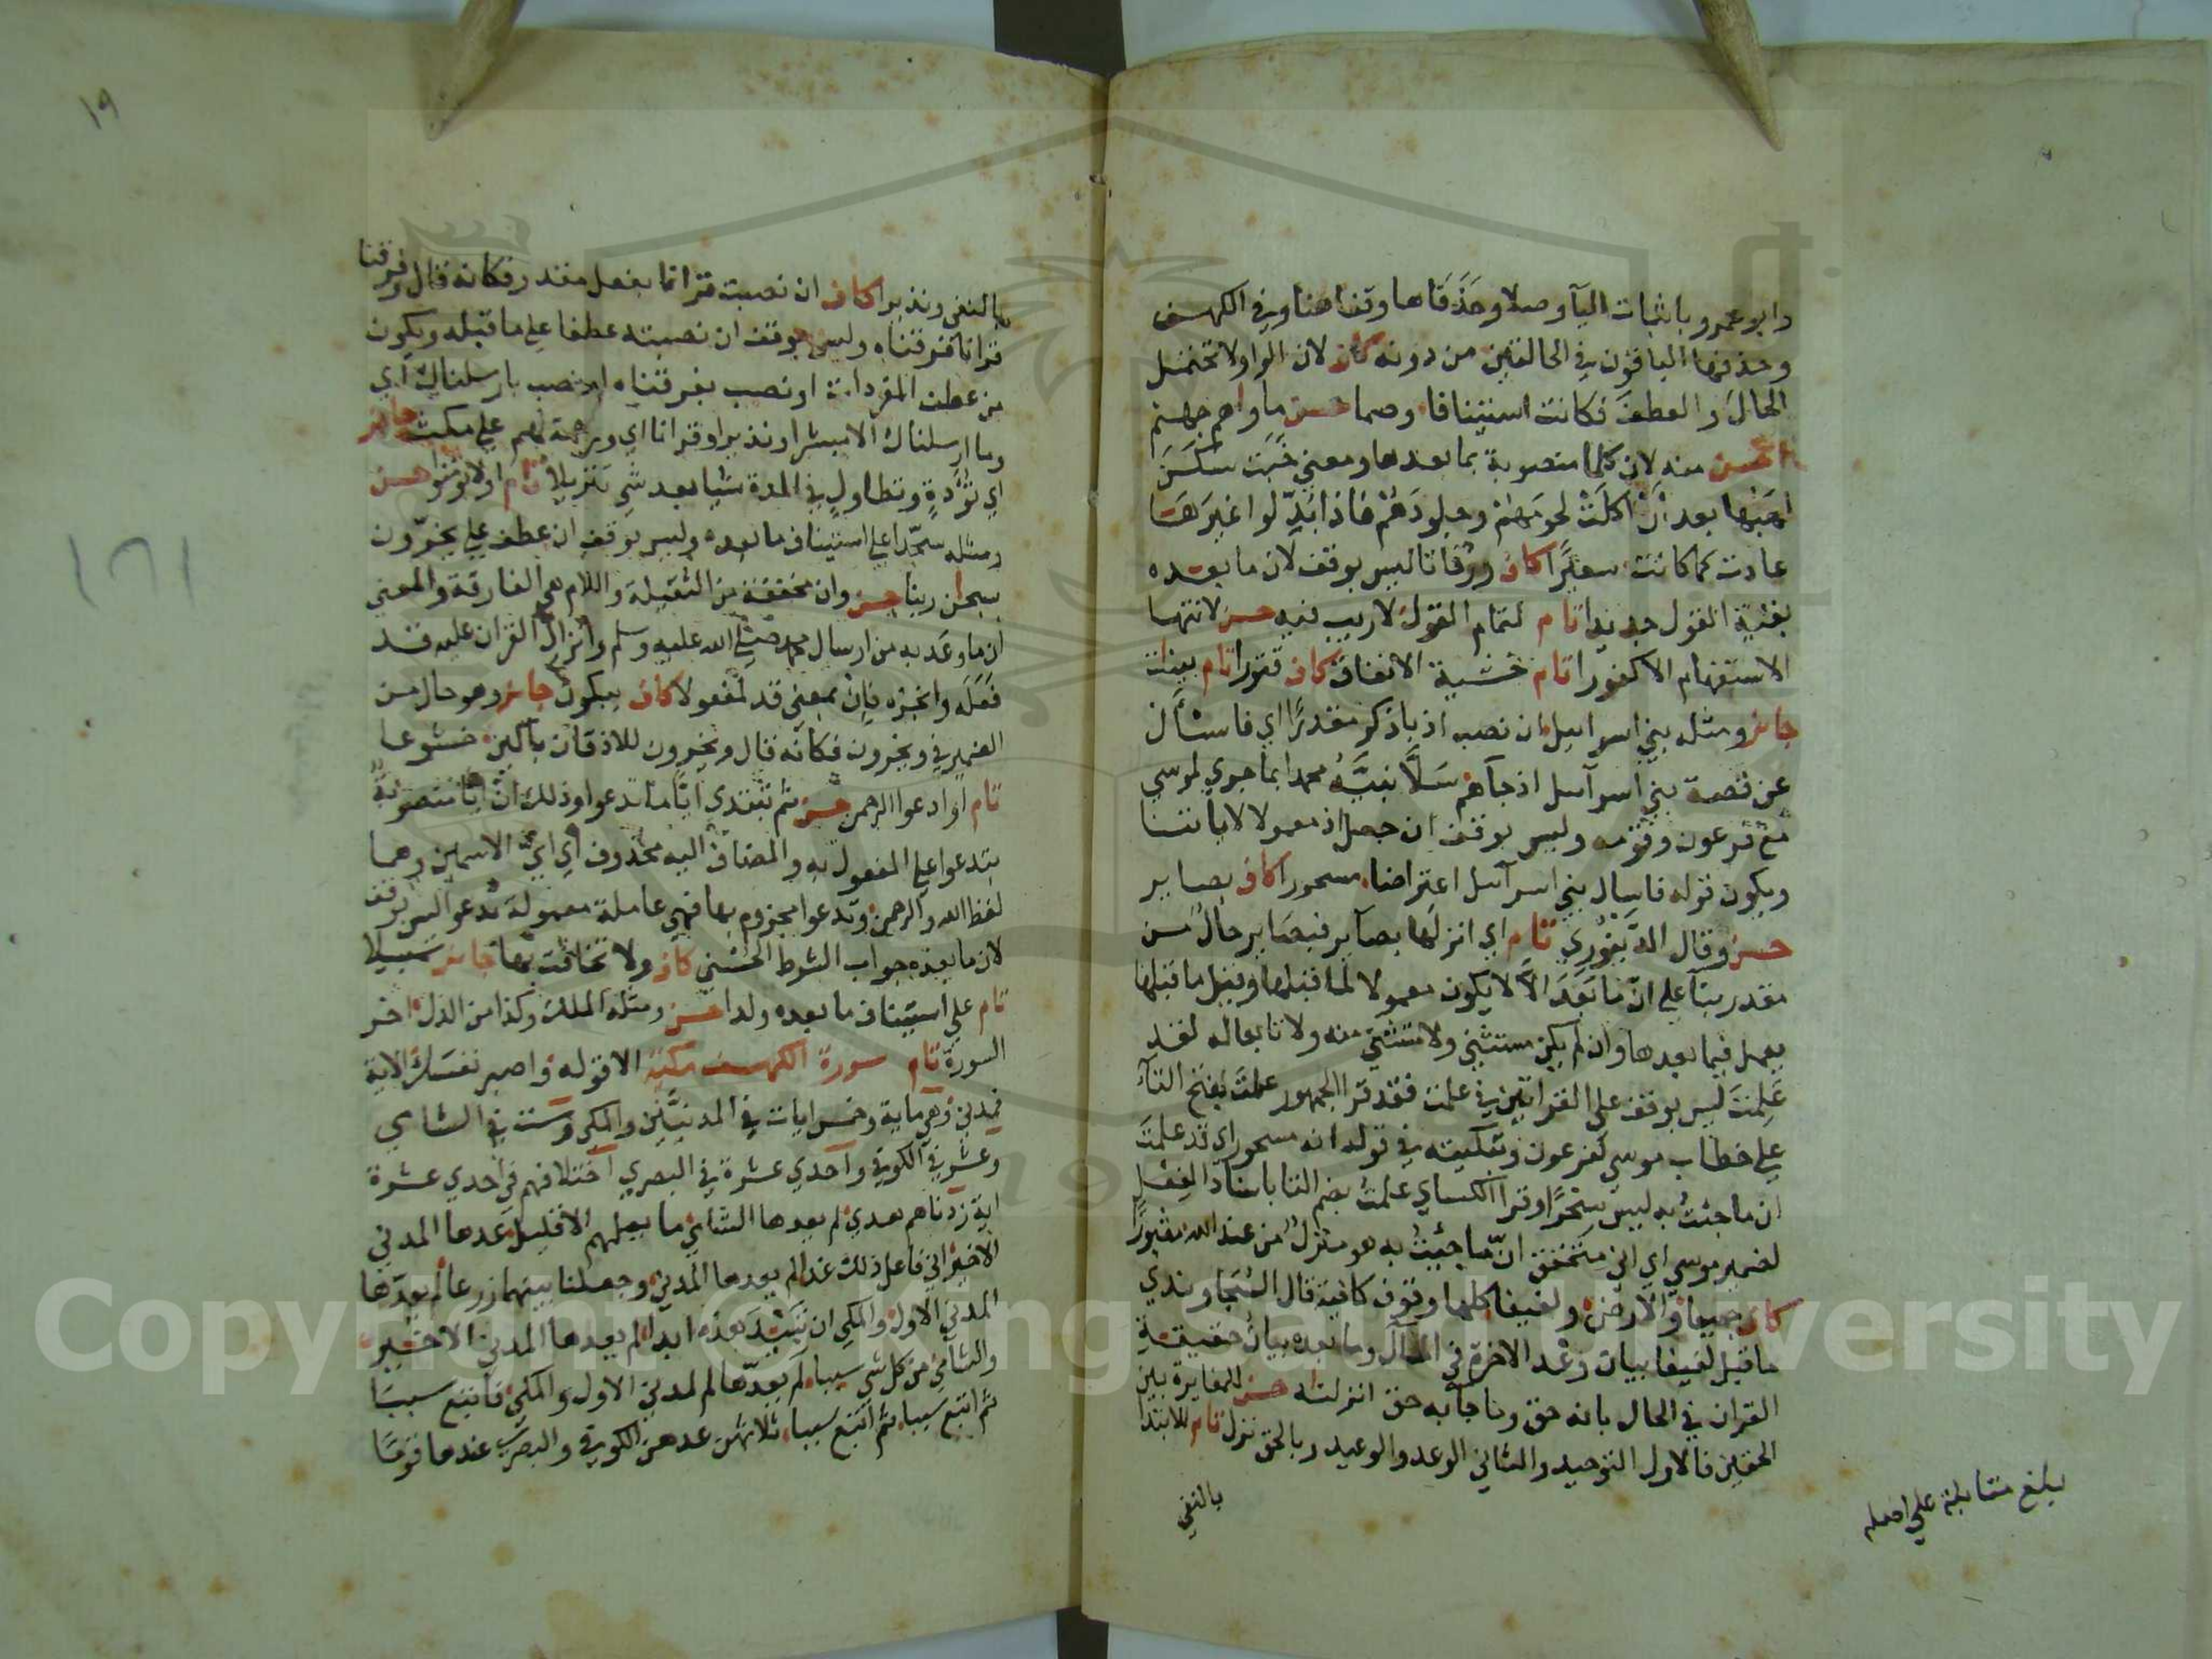 وابو عمرو باثبات اليآ وصلا وحذفاها وقفا هنا وفي الكهف
وحذفها الباقون في الحالتين من دونه كاف لان الواو لا تحتمل
الحال والعطف فكانت استينافا وصما حسن ماواهم جهنم
احسن منه لان كلما منصوبة بما بعدها ومعني خبت سكن
لهبها بعد ان اكلت لحومهم وجلودهم فاذا بدّلوا غيرها
عادت كما كانت سعيرا كاف ورفاتا ليس بوقف لان ما بعده
بقية القول جديدا تام لتمام القول لا ريب فيه حسن لانتها
الاستفهام الا كفورا تام خشية الانفاق كاف قتورا تام بينات
جائز ومثله بني اسراييل ان نصب اذ باذكر مقدرًا اي فاسئال
عن قصة بني اسرآئيل اذ جآهم سلَّا نبيَّهُ محمدا بما جري لموسي
مع فرعون وقومه وليس بوقف ان جعل اذ معمولا لاياتنا
ويكون قوله فاسال بني اسرآئيل اعتراضا مسحورا كاف بصاير
حسن وقال الدينوري تام اي انزلها بصآير فبصاير حال من
مقدر بنآ علي انّ ما بعد الاّ لا يكون معمولا لما قبلها وقيل ما قبلها
يعمل فيما بعدها وان لم يكن مستثني ولا مستثني منه ولا تابعا له لقد
علمت ليس بوقف علي القراتين في علمت فقد قرا الجمهور علمتَ بفتح التآء
علي خطاب موسي لفرعون وتبكيته في قوله انه مسحور اي قد علمت
ان ما جئت به ليس سحرًا وقرا الكسايي علمتُ بضم التا باسناد الفعل
لضمير موسي اي اني متحقق انّ ما جئت به هو منزل من عند الله مثبورًا
كاف جميعا والارض ولفيفا كلها وقوف كافية قال السجاوندي
ما قيل لفيفا بيان وعد الاخرة في المآل وما بعده بيان حقيقة
القران في الحال بانه حق وما جآ به حق انزلناه حسن للمغايرة بين
الحقين فالاول التوحيد والثاني الوعد والوعيد وبالحق نزل تام للابتدا
بالنفي
بلغ مقابلة علي اصله
١٩
بالنفي ونذيرا كاف ان نصبت قرانا بفعل مقدر فكانه قال وفرقنا
قرانا فرقناه وليس بوقف ان نصبته عطفا علي ما قبله ويكون
من عطف المفردات او نصب بفرقناه او نصب بارسلناك اي
وما ارسلناك الا مبشرا ونذيرا وقرانا اي ورحمة لهم علي مكث جائز
اي تؤدة وتطاول في المدة شيا بعد شي تنزيلا تام اولا تؤمنوا حسن
ومثله سجّدا علي استيناف ما بعده وليس بوقف ان عطف علي يخرّون
سبحان ربنا حسن وان مخففة من الثقيلة واللام هي الفارقة والمعني
ان ما وعد به من ارسال محمد صلي الله عليه وسلم وانزال القران عليه قد
فعله وانجزه فان بمعني قد لمفعولا كاف يبكون جائز وهو حال من
الضمير في ويخرون فكانه قال ويخرون للاذقان باكين خشوعا
تام او ادعوا الرحمن حسن ثم تبتدي ايّا ما تدعوا وذلك ان ايّا منصوبة
بتدعوا علي المفعول به والمضاف اليه محذوف اي ايّ الاسمين وهما
لفظ الله والرحمن وتدعوا مجزوم بها فهي عاملة معمولة تدعوا ليس بوقف
لان ما بعده جواب الشرط الحسني كاف ولا تخافت بها جائز سبيلا
تام علي استيناف ما بعده ولدا حسن ومثله الملك وكذا من الذل اخر
السورة تام سورة الكهف مكية الا قوله واصبر نفسك الاية
فمدني وهي ماية وخمس ايات في المدنيين والمكي وست في الشامي
وعشر في الكوفي واحدي عشرة في البصري اختلافهم في احدي عشرة
اية زدناهم هدي لم يعدها الشامي ما يعلمهم الا قليل عدها المدني
الاخير اني فاعل ذلك غدا لم يعدها المدني وجعلنا بينهما زرعا لم يعدّها
المدني الاول والمكي ان تبيد هذه ابدا لم يعدها المدني الاخير
والشامي من كل شي سببا لم يعدّها المدني الاول والمكي فاتبع سببا
ثم اتبع سببا ثم اتبع سببا ثلاثهن عدهن الكوفي والبصري عندها قومًا
Copyright © King Saud University